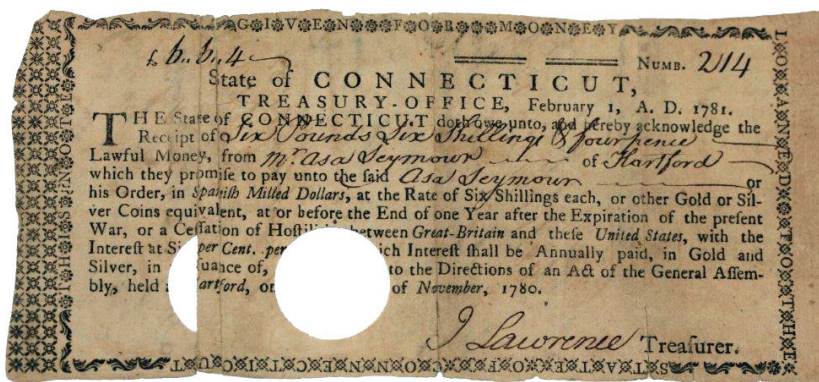 GIVEN FOR MONEY
LOANED TO THE
STATE OF CONNECTICUT
THIS NOTE
£6..6..4 NUMB. 214
State of CONNECTICUT,
TREASURY-OFFICE, February 1, A. D. 1781.
THE State of CONNECTICUT doth owe unto, and hereby acknowledge the
Receipt of Six Pounds Six Shillings & fourpence
Lawful Money, from Mr Asa Seymour of Hartford
which they promise to pay unto the said Asa Seymour or
his Order, in Spanish Milled Dollars, at the Rate of Six Shillings each, or other Gold or Sil-
ver Coins equivalent, at or before the End of one Year after the Expiration of the present
War, or a Cessation of Hostilities between Great-Britain and these United States, with the
Interest at Six per Cent. per ich Interest shall be Annually paid, in Gold and
Silver, in uance of, to the Directions of an Act of the General Assem-
bly, held a artford, o of November, 1780.
J Lawrence Treasurer.